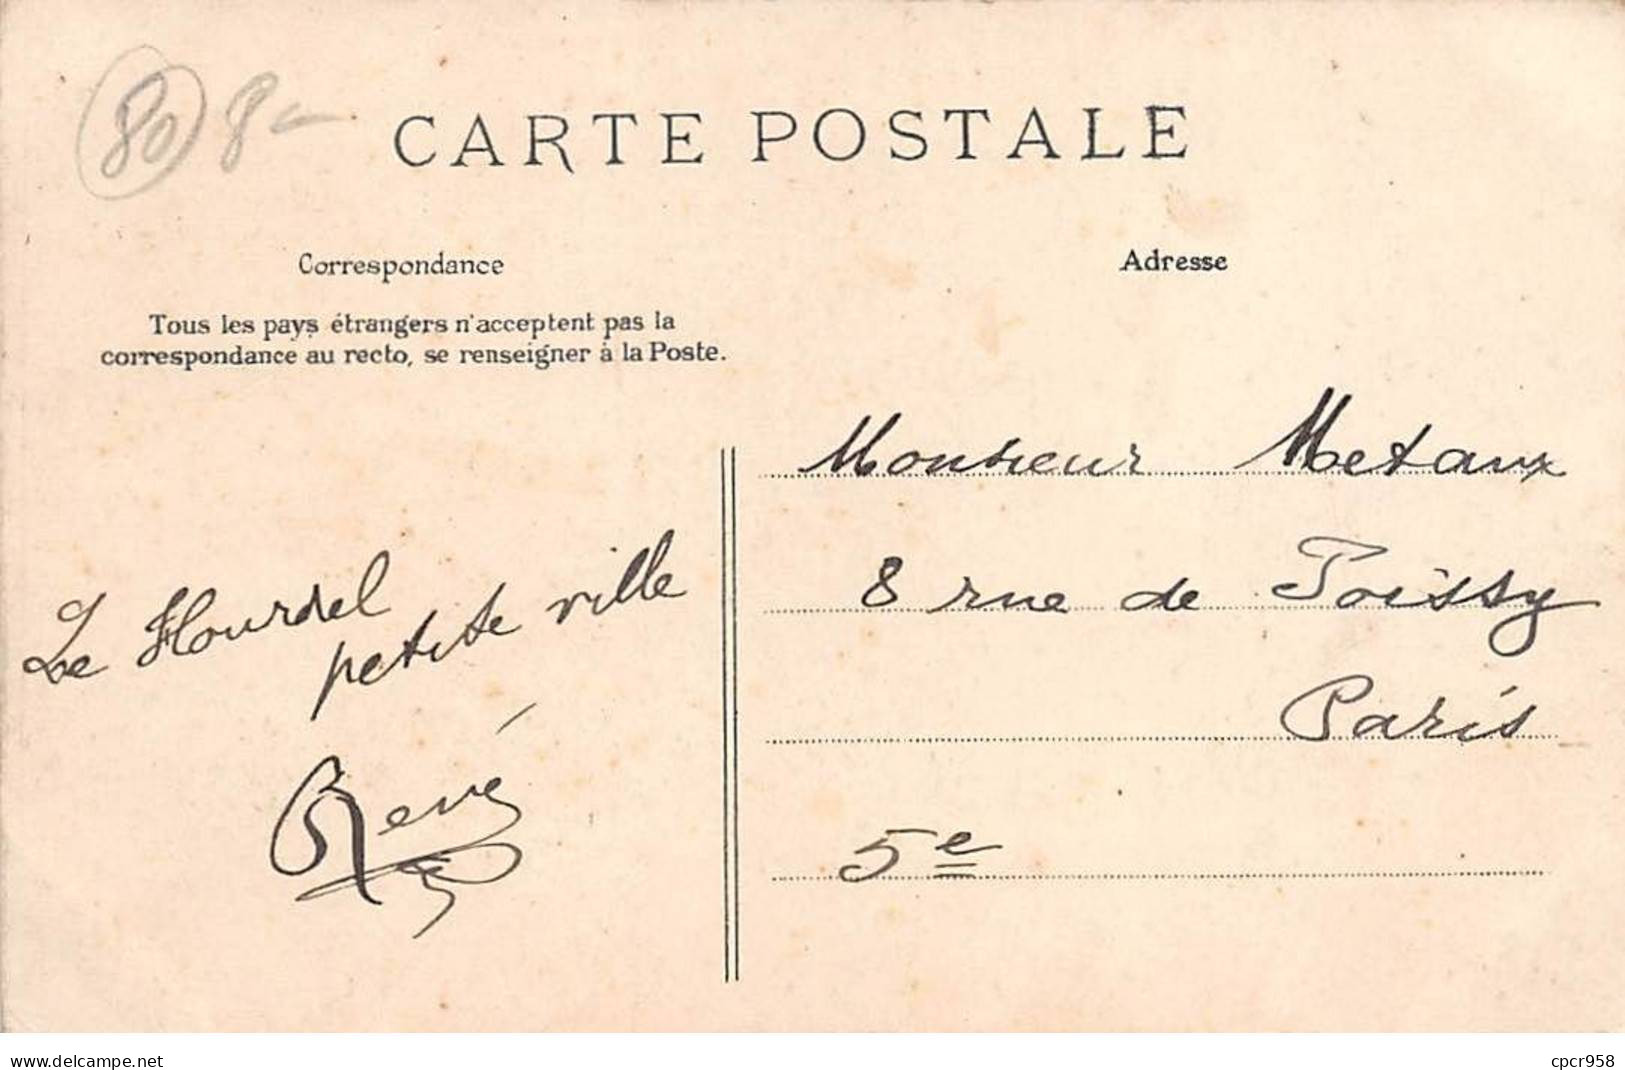 80 8-
CARTE POSTALE
Correspondance
Adresse
Tous les pays étrangers n'acceptent pas la
correspondance au recto, se renseigner à la Poste.
Le Hourdel
petite ville
René
Monsieur Metaux
8 rue de Poissy
Paris
5e
www.delcampe.net
cpcr958